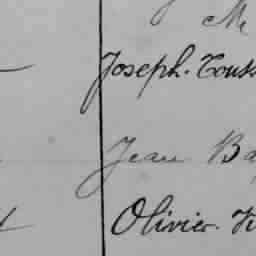 Joseph. Touss
Jean Ba
Olivier.